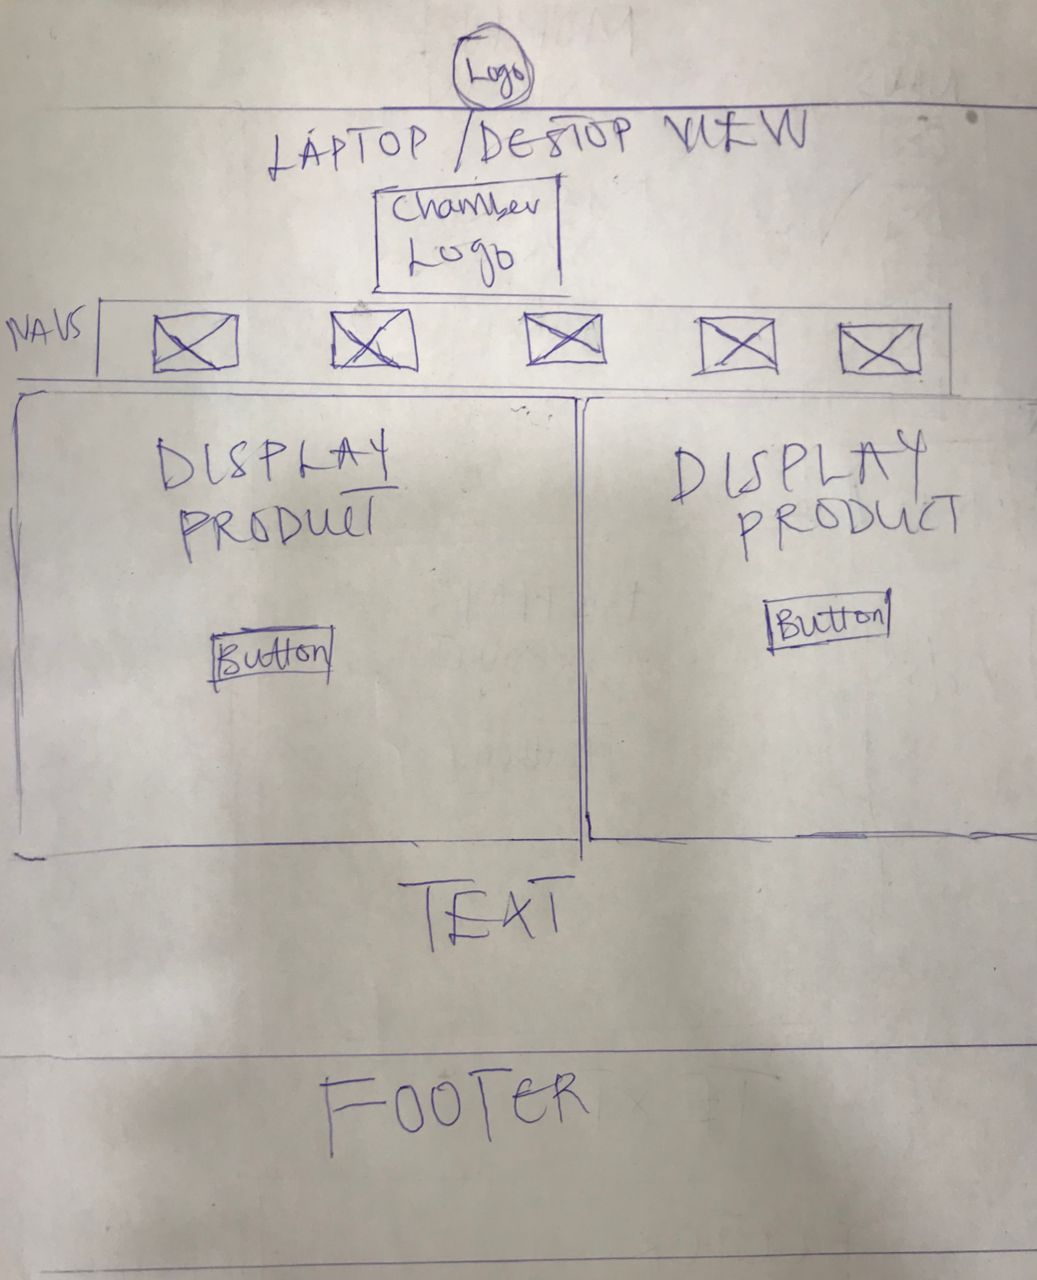 Logo
LAPTOP / DESTOP VIEW
Chamber
Logo
NAVS
DISPLAY
PRODUCT
Button
DISPLAY
PRODUCT
Button
TEXT
FOOTER